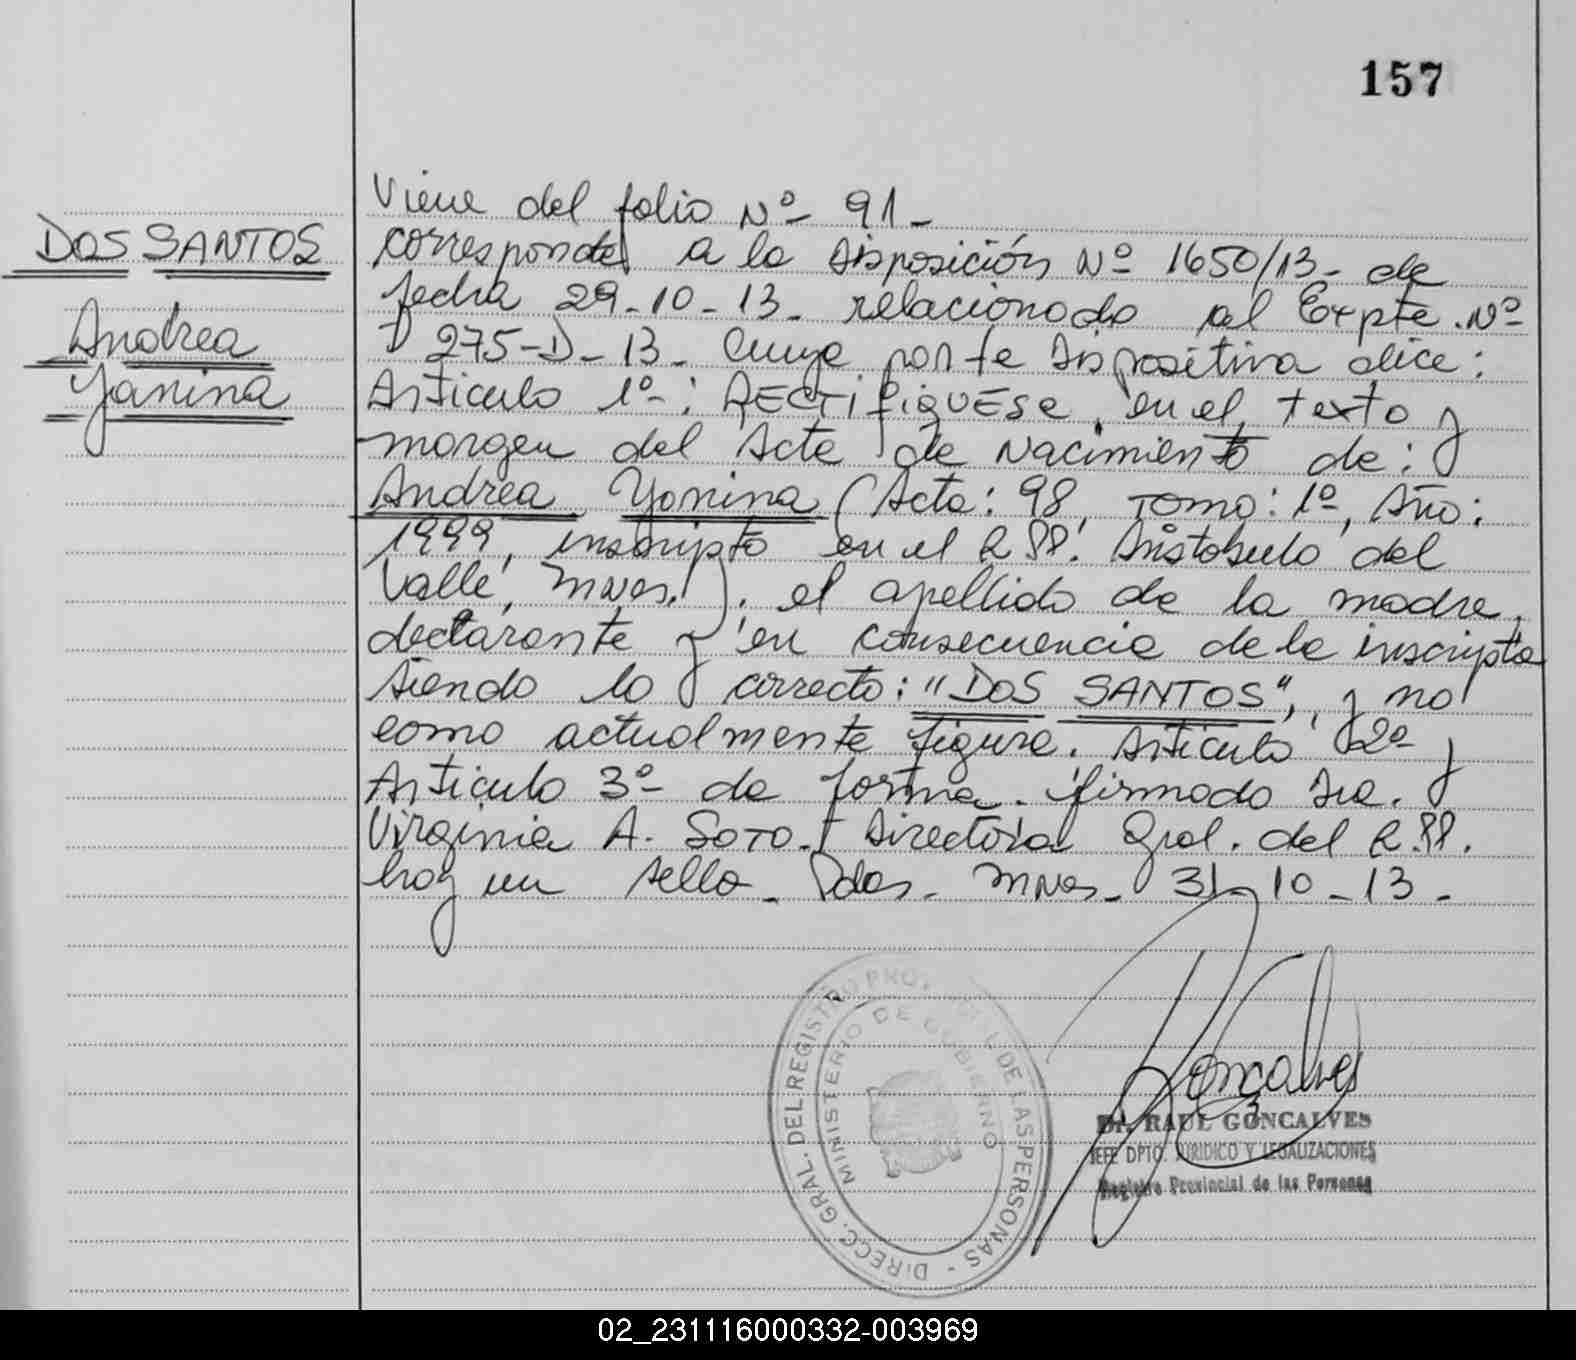 157
Viene del folio Nº 91_
DOS SANTOS
Andrea
Yanina
corresponde a la Disposición Nº 1650/13_ de
fecha 29_10_13_ relacionado al Expte. Nº
275_D_13_ Cuya parte Dispositiva dice:
Articulo 1º: RECTIFIQUESE, en el texto y
margen del Acta de Nacimiento de:
Andrea Yanina (Acta: 98, Tomo: 1º, Año:
1999, inscripta en el R.PP. Aristobulo del
Valle, Mnes.), el apellido de la madre,
declarante y en consecuencia de la inscripta
siendo lo correcto: "DOS SANTOS", y no
como actualmente figura. Articulo 2º y
Articulo 3º de forma. firmado Sra.
Virginia A. SOTO. Directora Gral. del R.PP.
hay un sello_ Pdas_ Mnes_ 31_10_13_
DIRECC. GRAL. DEL REGISTRO PROVINCIAL DE LAS PERSONAS -
MINISTERIO DE GOBIERNO
Goncalves
Dr. RAUL GONCALVES
JEFE DPTO. JURIDICO Y LEGALIZACIONES
Registro Provincial de las Personas
02_231116000332-003969